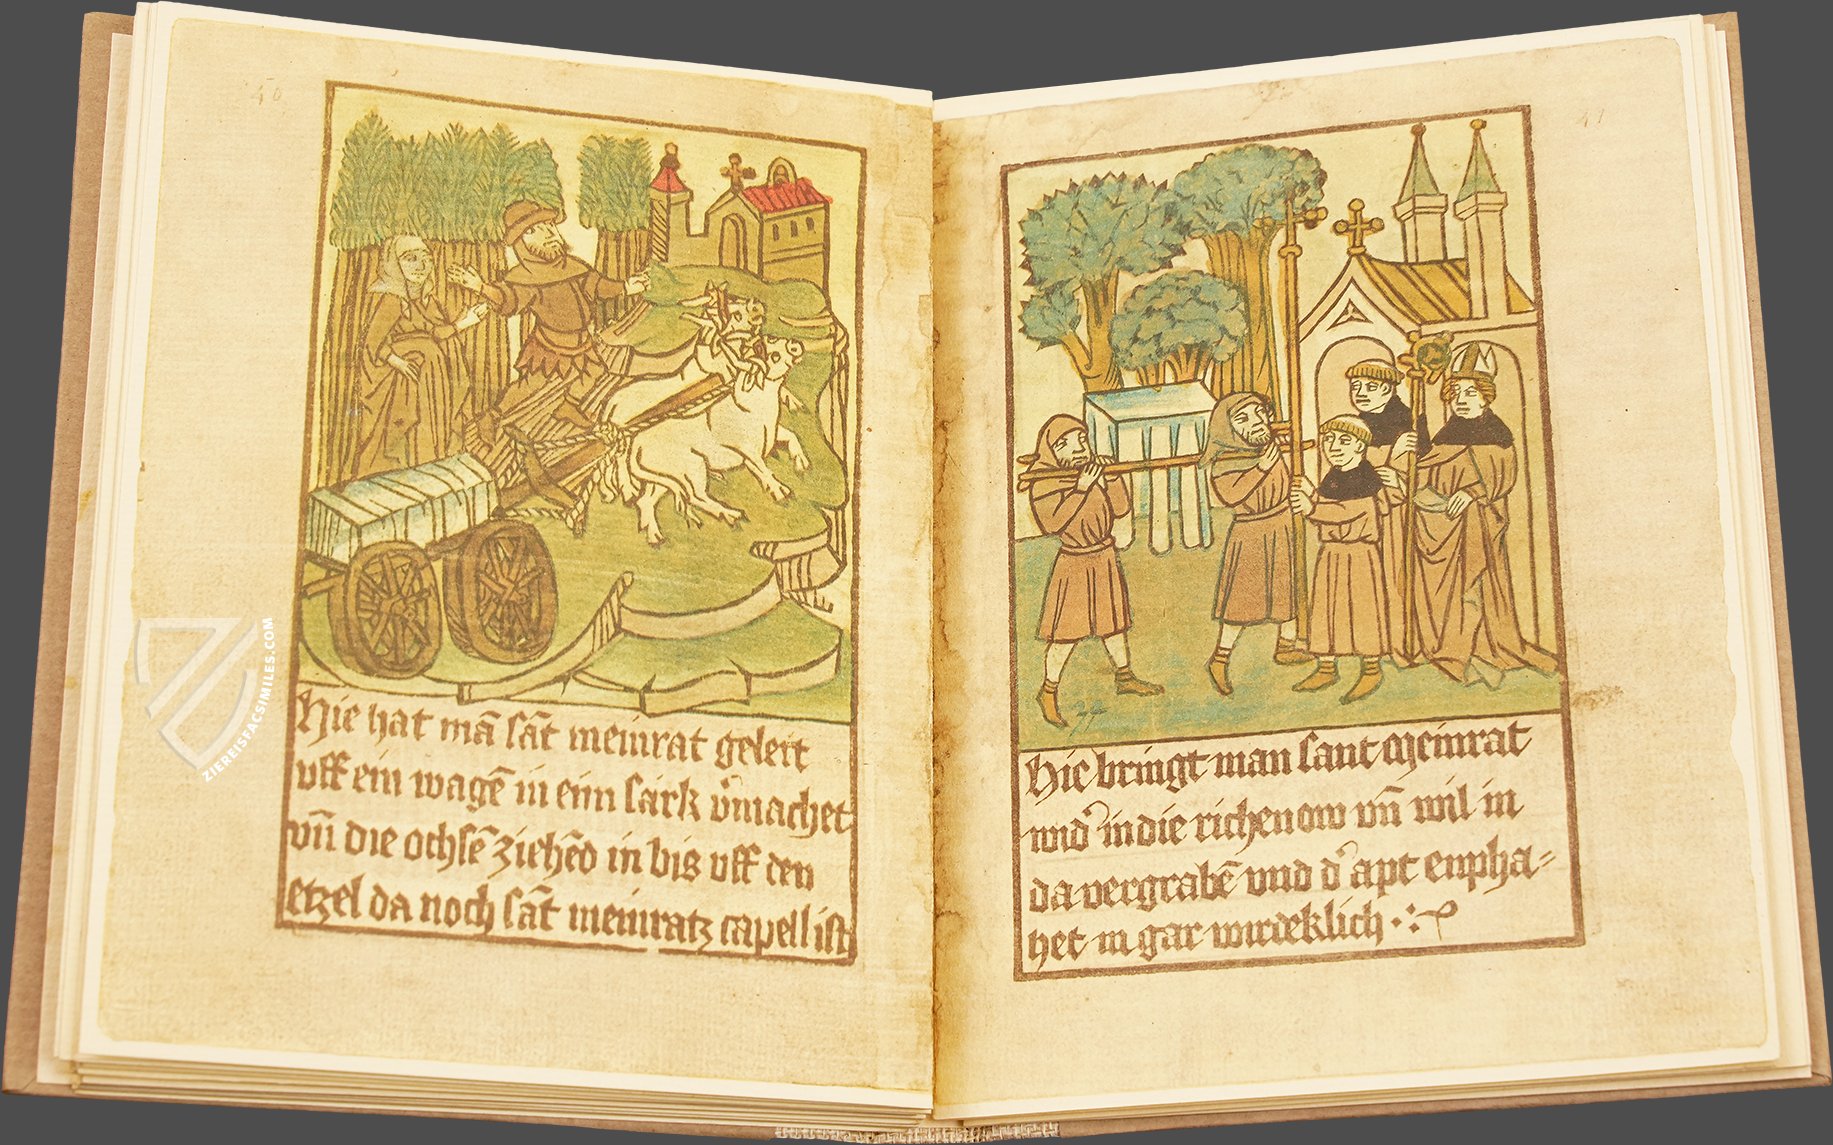 40
Hie hat mā sāt meinrat geleit
vff ein wagē in einn sark v̕machet
vn̄ die ochsē ziehēd in bis vff den
etzel da noch sāt meinratz capell ist
ZIEREISFACSIMILES.COM
41
Hie bringt man sant meinrat
wid̕ in die richenow vn̄ wil in
da vergrabē vnd d̕ apt enpha=
het in gar wirdeklich